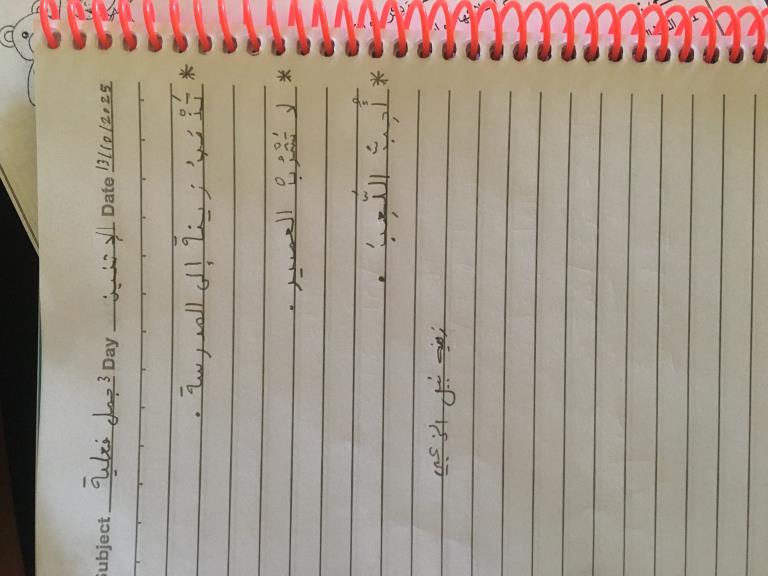 Subject 3 جمل فعلية Day الإثنين Date 13/10/2025
* تَذْهَبُ زينةُ إلى المدرسة.
* لا تشربْ العصير.
* أُحِبُّ اللّعِبَ.